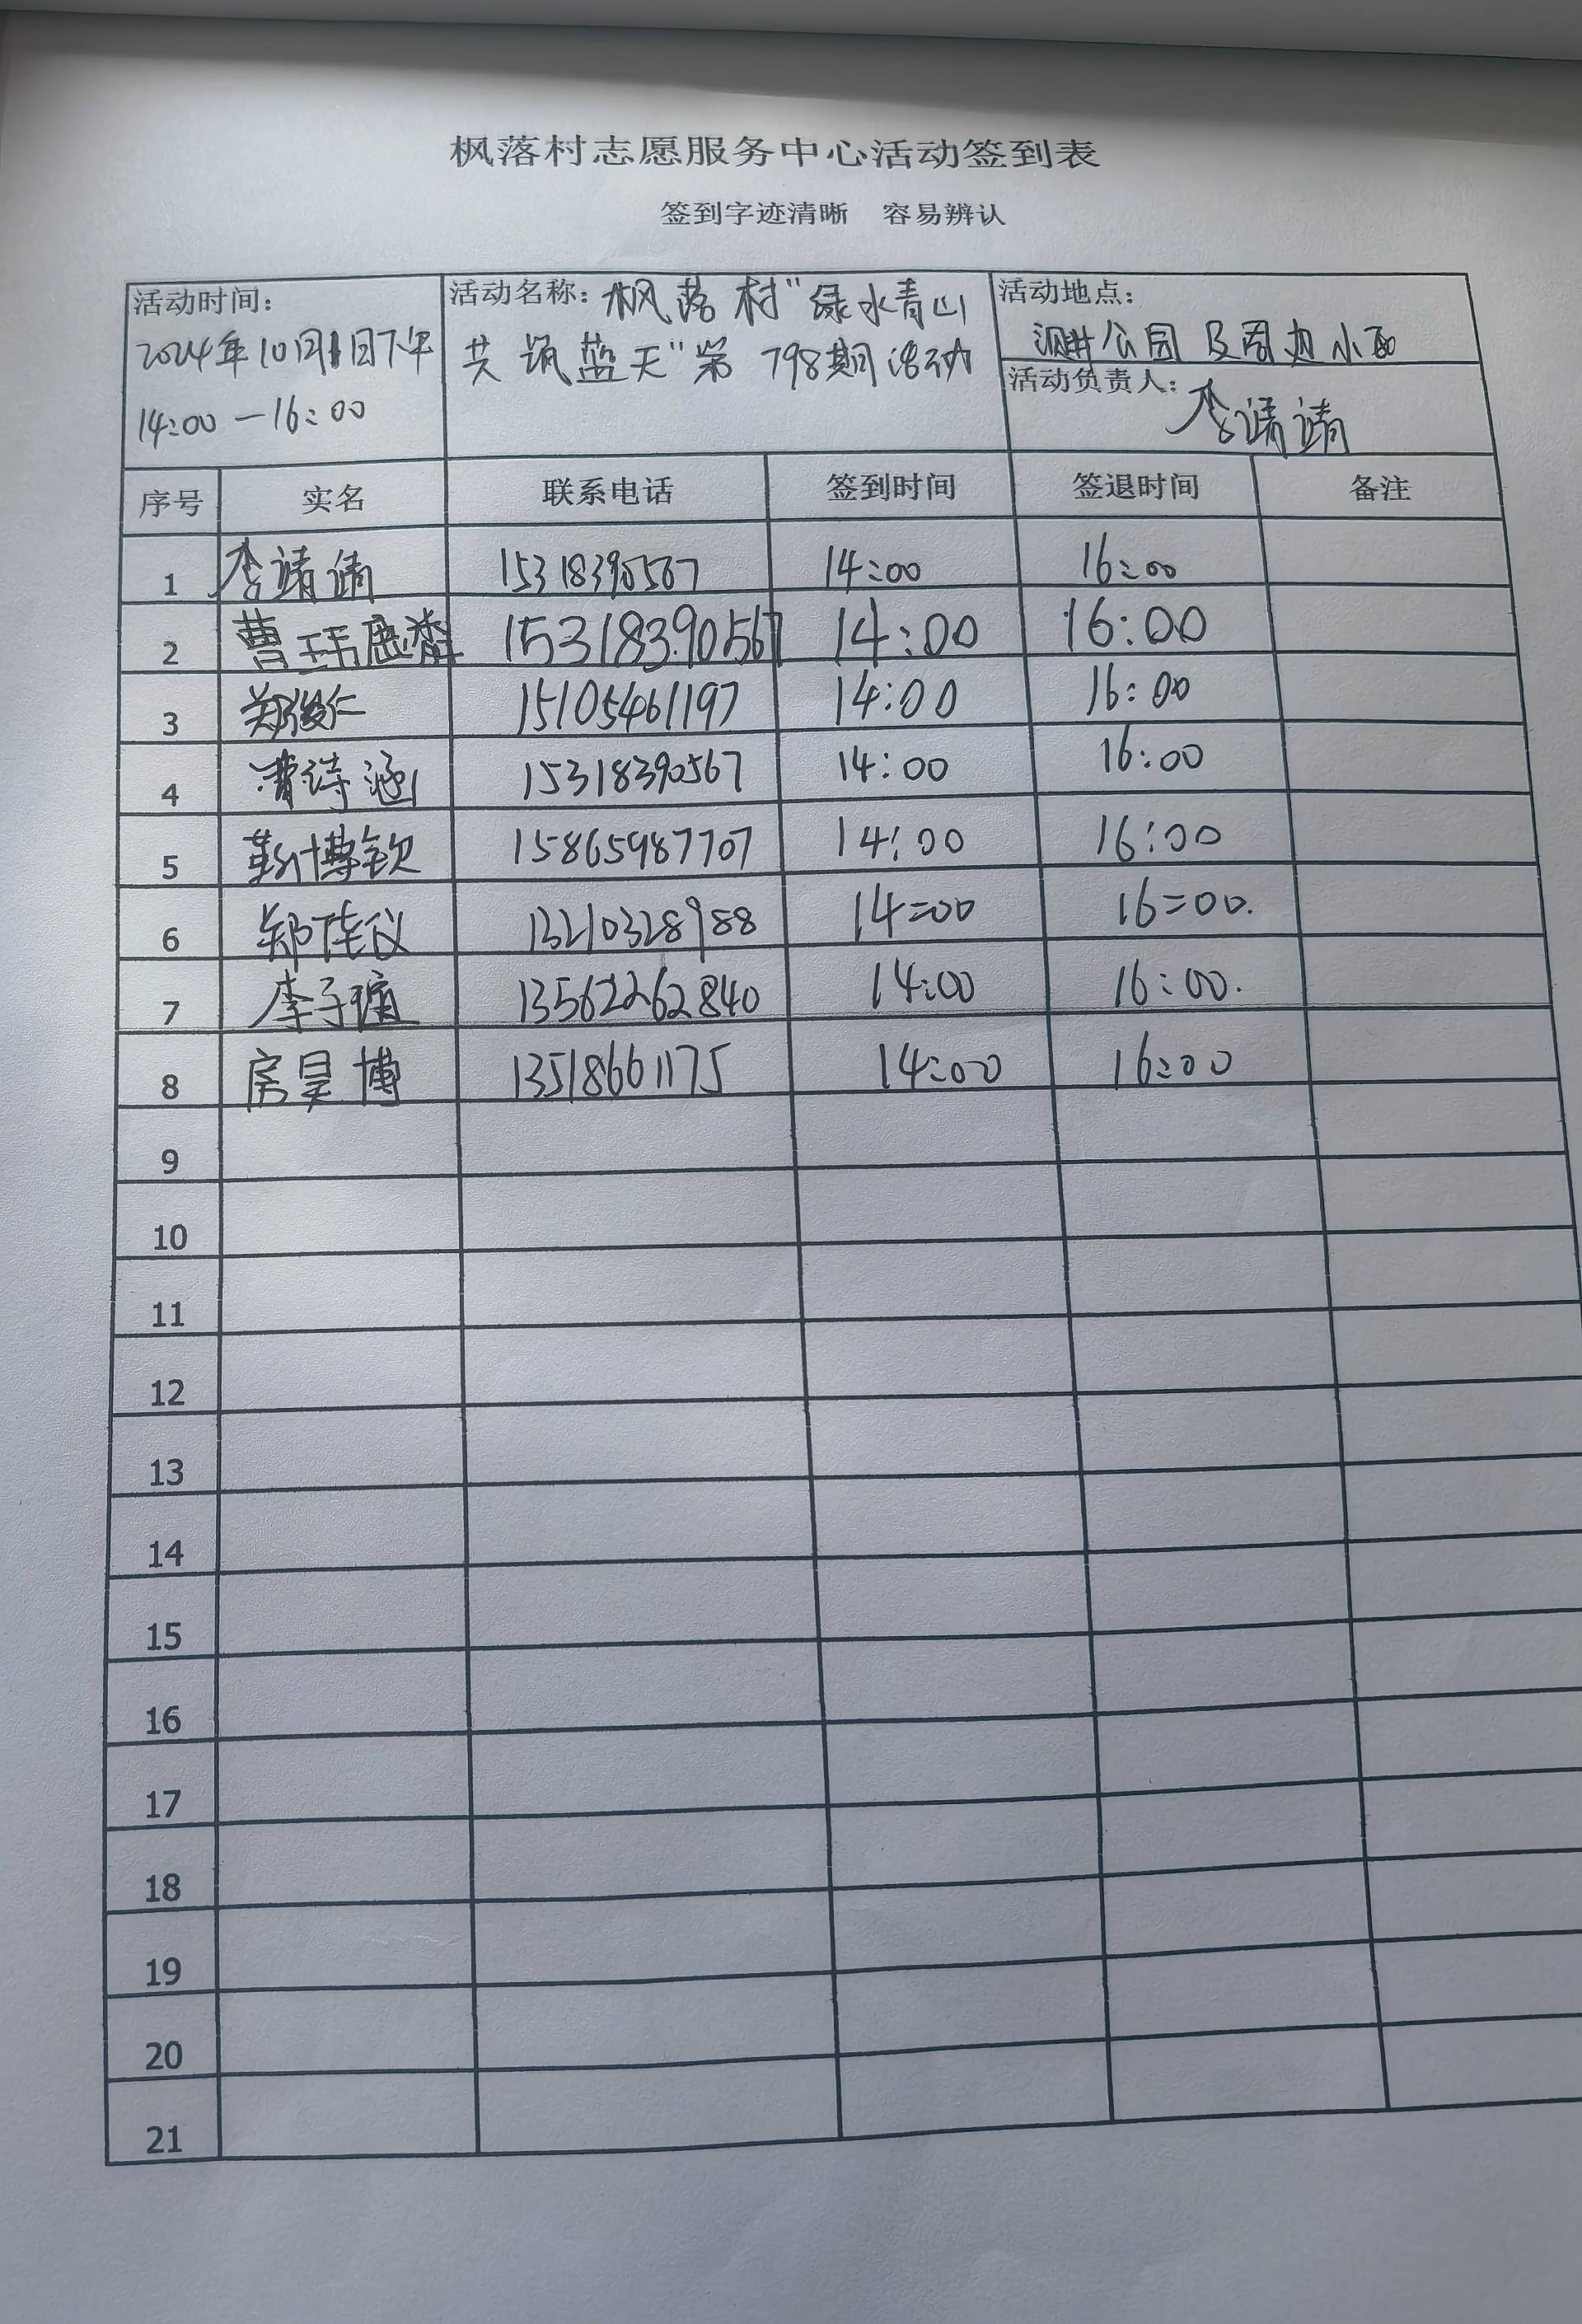 枫落村志愿服务中心活动签到表
签到字迹清晰 容易辨认
活动时间：
2024年10月1日下午
14:00－16:00
活动名称：枫落村"绿水青山
共筑蓝天"第798期活动
活动地点：
公园及周边小
活动负责人：
李靖靖
序号 实名 联系电话 签到时间 签退时间 备注
1 李靖靖 15318390567 14:00 16:00
2 曹玮 15318390567 14:00 16:00
3 郑俊仁 15105461197 14:00 16:00
4 曹诗涵 15318390567 14:00 16:00
5 靳博钦 15865987707 14:00 16:00
6 郑佳仪 13210328988 14:00 16:00.
7 李子瑄 13562262840 14:00 16:00.
8 房昊博 13518661175 14:00 16:00
9
10
11
12
13
14
15
16
17
18
19
20
21